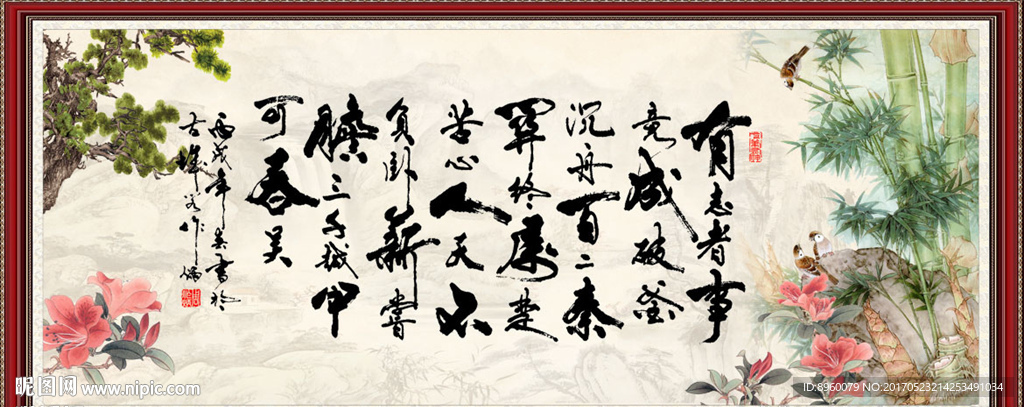 有志者事
竟成破釜
沉舟百二秦
関终属楚
苦心人天不
負卧薪嘗
膽三千越甲
可吞吴
丙戌年
書於
古
昵图网 www.nipic.com
ID:8960079 NO:20170523214253491034